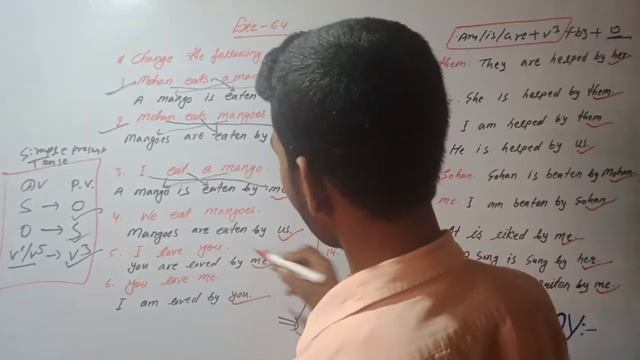 Exe-64
# Change the following
1. Mohan eats a man
A mango is eaten
2. Mohan eats mangoes
Mangoes are eaten by
3. I eat a mango.
A mango is eaten by me
4. We eat mangoes.
Mangoes are eaten by us.
5. I love you.
you are loved by me
6. you love me.
I am loved by you.
Simple present
Tense
P.V.
S → O
O → S
V¹/V⁵ → V³
14
Am/is/are + V³ + by + O
them. They are helped by her
She is helped by them.
I am helped by them
He is helped by us
Sohan. Sohan is beaten by Mohan.
me. I am beaten by Sohan
It is liked by me
A song is sung by her.
by me.